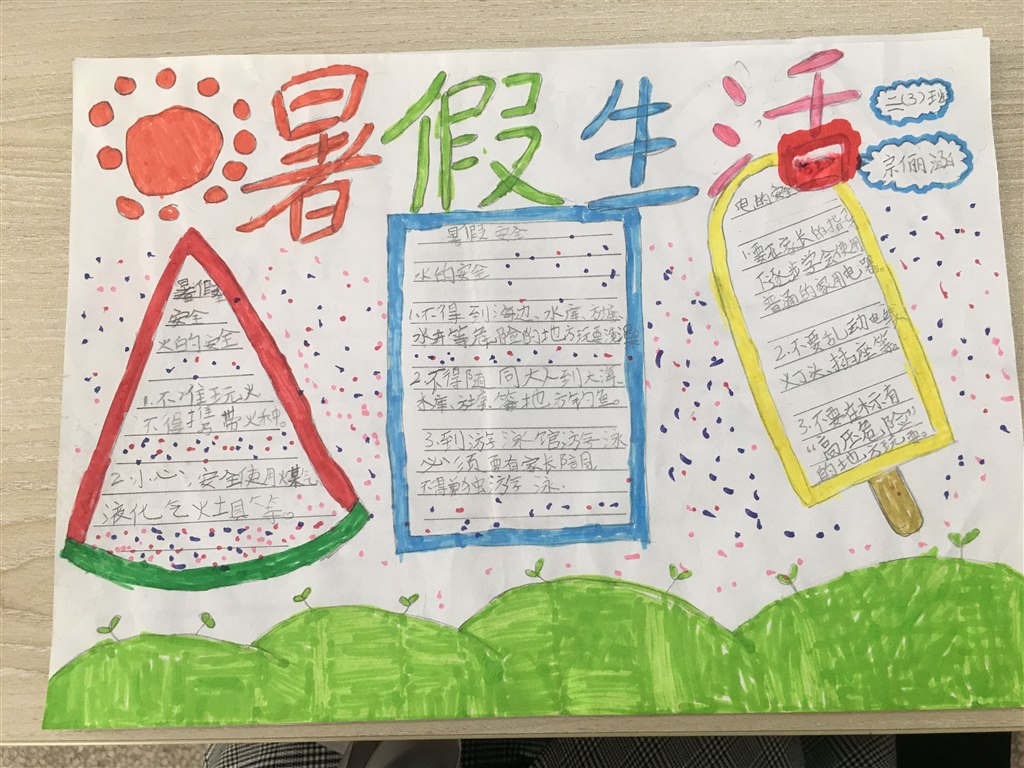 暑假生活
二(3)班
宗俪涵
暑假
安全
火的安全
1.不准玩火
不得携带火种。
2.小心安全使用煤气
液化气灶具等。
暑假安全
水的安全
1.不得到海边、水库、方塘
水井等危险的地方玩耍洗澡
2.不得陪同大人到大海
水库、方塘等地方钓鱼。
3.到游泳馆游泳
必须要有家长陪同
不得单独游泳.
电的安全
1.要在家长的指导
下逐步学会使用
普通的家用电器。
2.不要乱动电线
灯头、插座等。
3.不要在标有
"高压危险"
的地方玩耍。